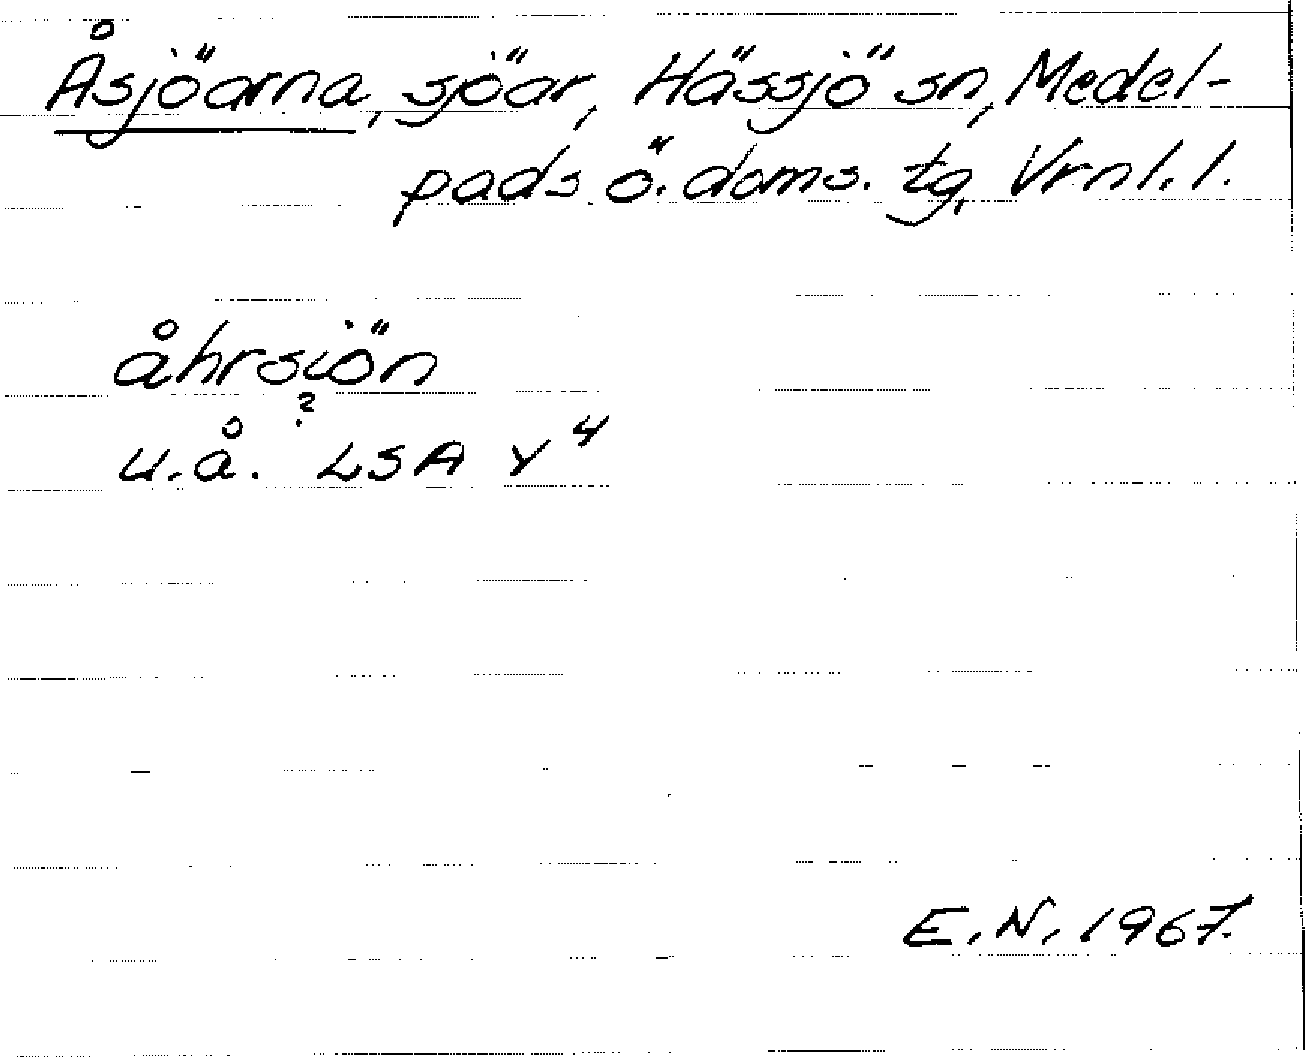 Åsjöarna, sjöar, Hässjö sn, Medel-
pads ö. doms. tg, Vrnl. l.
åhrsiön
?
u.å. LSA Y 4
E.N. 1967.